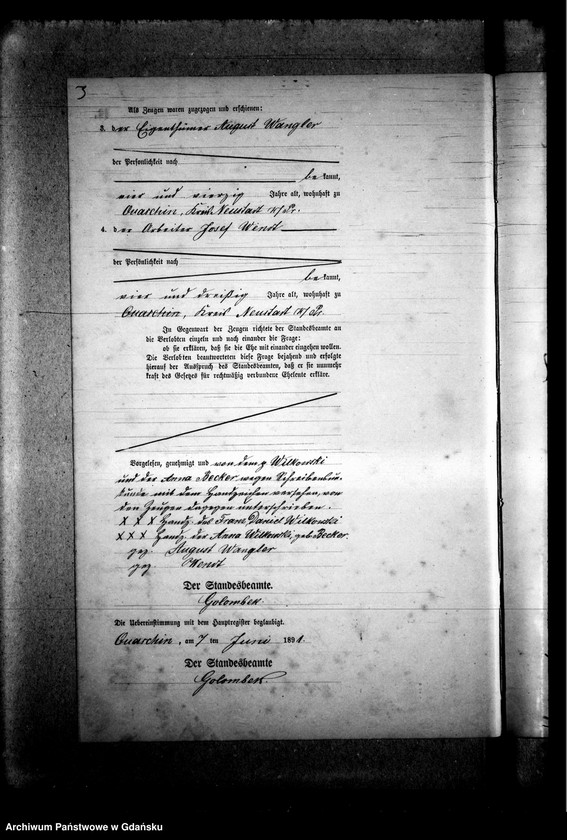 3
Als Zeugen waren zugezogen und erschienen:
3. der Eigenthümer August Wangler
der Persönlichkeit nach
be kannt,
vier und vierzig Jahre alt, wohnhaft zu
Quaschin, Kreis Neustadt W/Pr.
4. der Arbeiter Josef Wendt
der Persönlichkeit nach
be kannt,
vier und dreißig Jahre alt, wohnhaft zu
Quaschin, Kreis Neustadt W/Pr.
In Gegenwart der Zeugen richtete der Standesbeamte an
die Verlobten einzeln und nach einander die Frage:
ob sie erklären, daß sie die Ehe mit einander eingehen wollen.
Die Verlobten beantworteten diese Frage bejahend und erfolgte
hierauf der Ausspruch des Standesbeamten, daß er sie nunmehr
kraft des Gesetzes für rechtmäßig verbundene Eheleute erkläre.
Vorgelesen, genehmigt und von dem p Wilkowski
und der Anna Becker wegen Schreibensun-
kunde mit dem Handzeichen versehen, von
den Zeugen dagegen unterschrieben.
X X X Handz. des Franz Daniel Wilkowski
X X X Handz. der Anna Wilkowski, geb. Becker.
gez. August Wangler
gez. Wendt
Der Standesbeamte.
Golombek.
Die Uebereinstimmung mit dem Hauptregister beglaubigt.
Quaschin, am 7 ten Juni 189
Der Standesbeamte
Golombek.
Archiwum Państwowe w Gdańsku